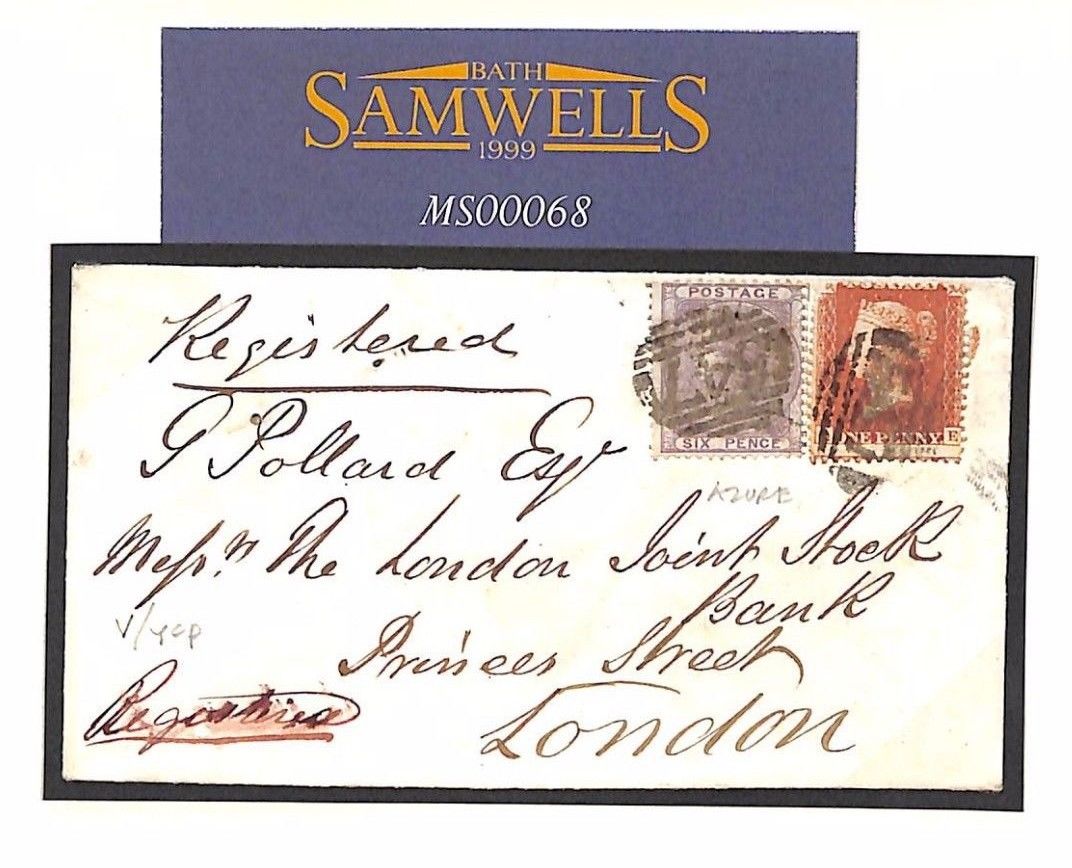 BATH
SAMWELLS
1999
MS00068
Registered
POSTAGE
SIX PENCE
ONE PENNY E
G Pollard Esqr
AZURE
Messrs The London Joint Stock
Bank
Princes Street
London
Registered